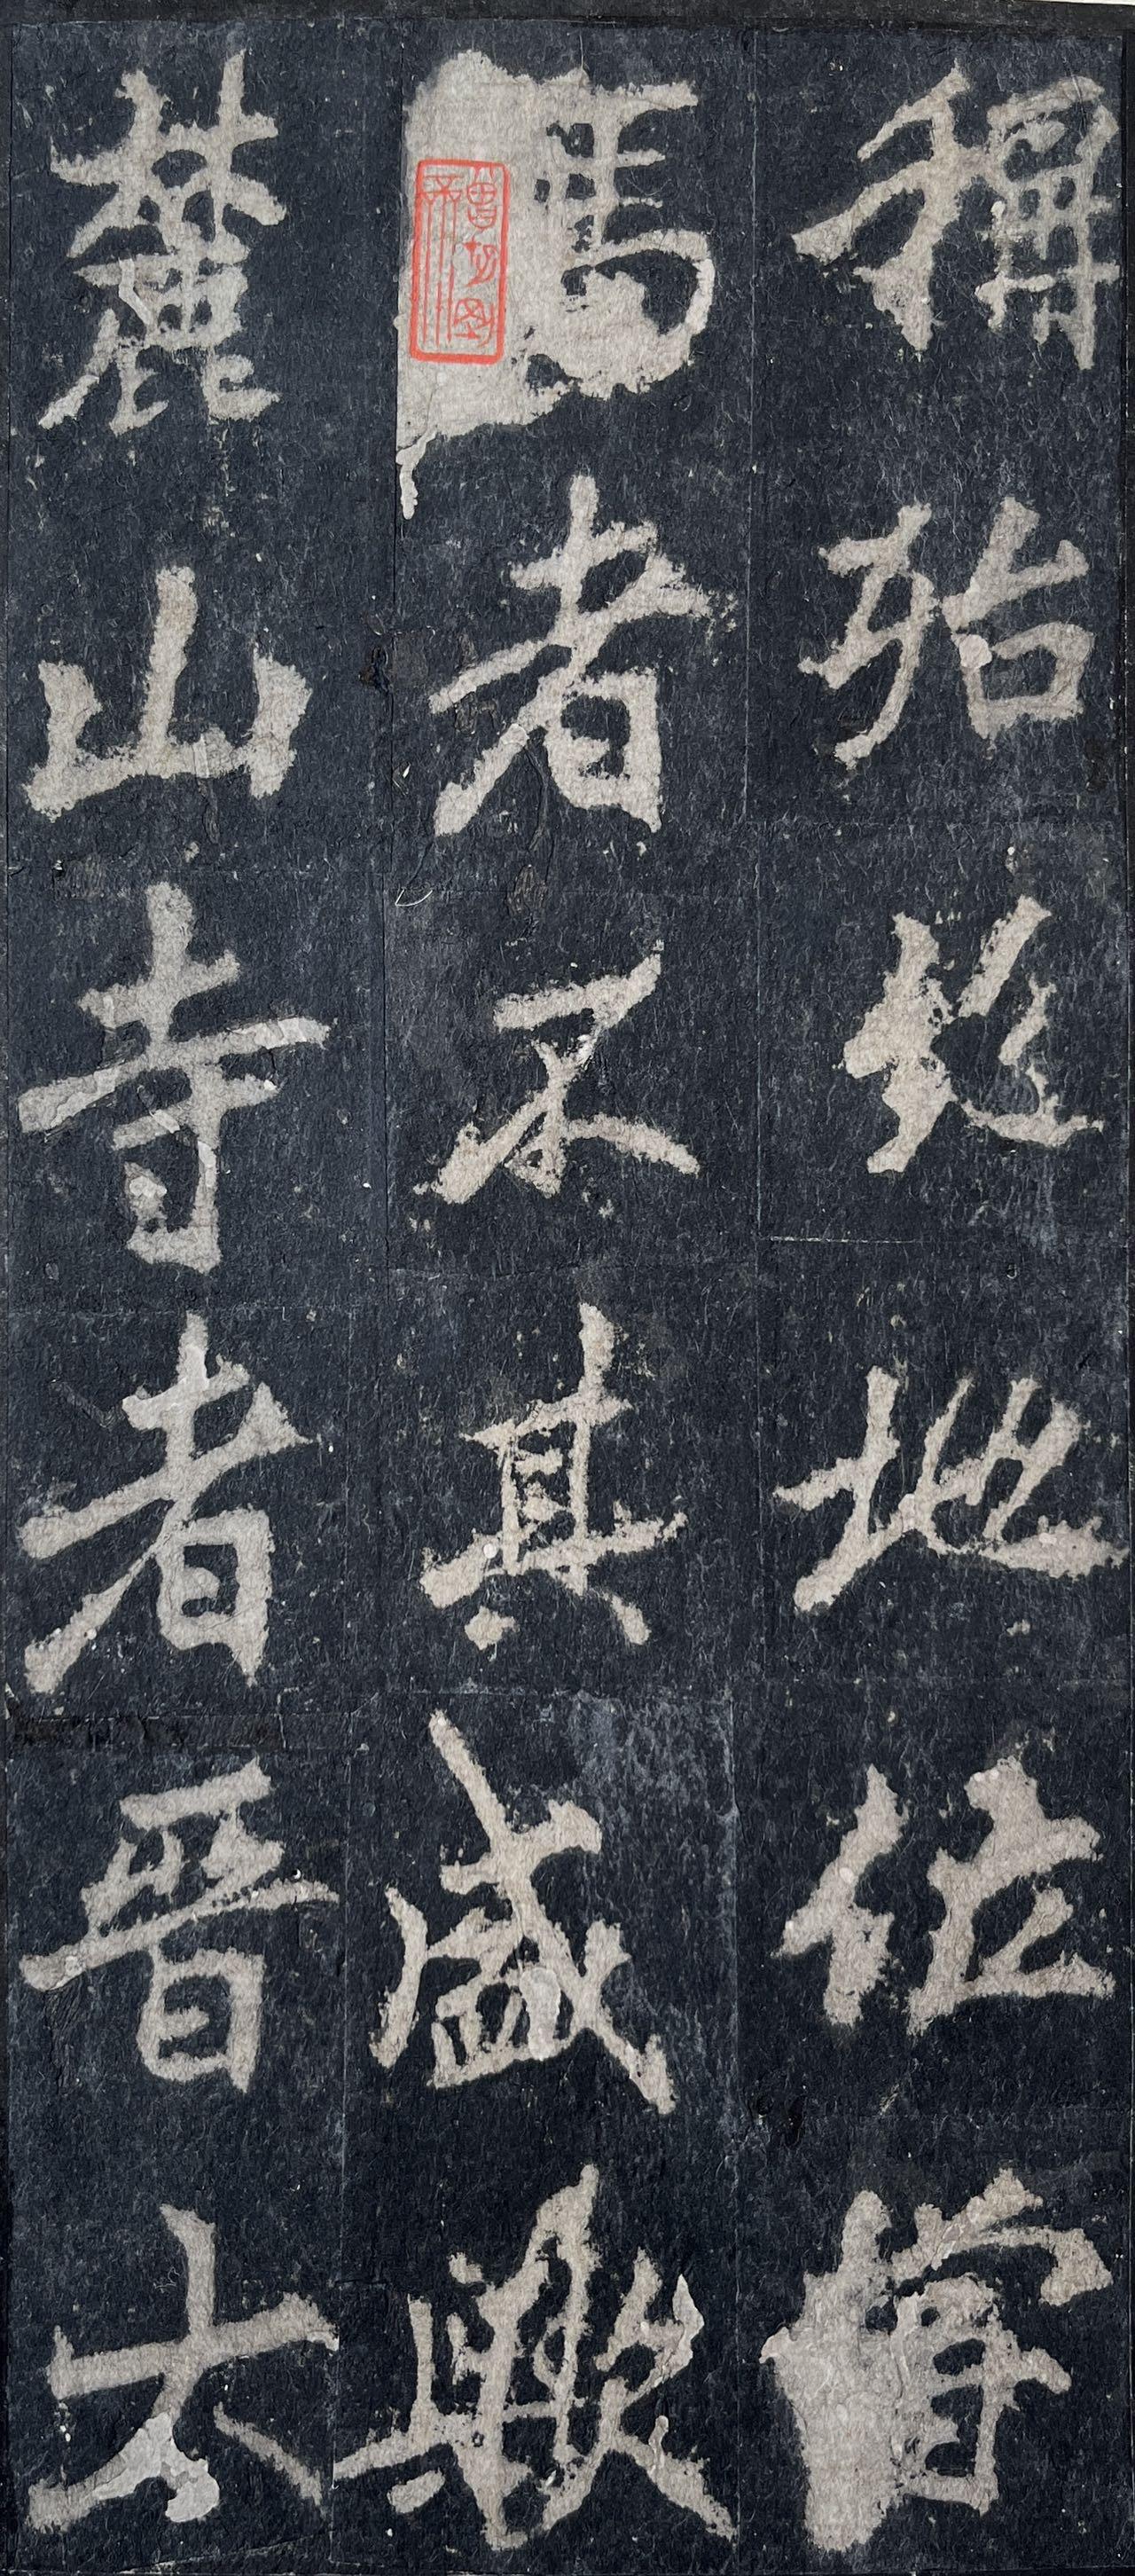 稱殆地位嘗
焉者不其盛歟
麓山寺者晉太